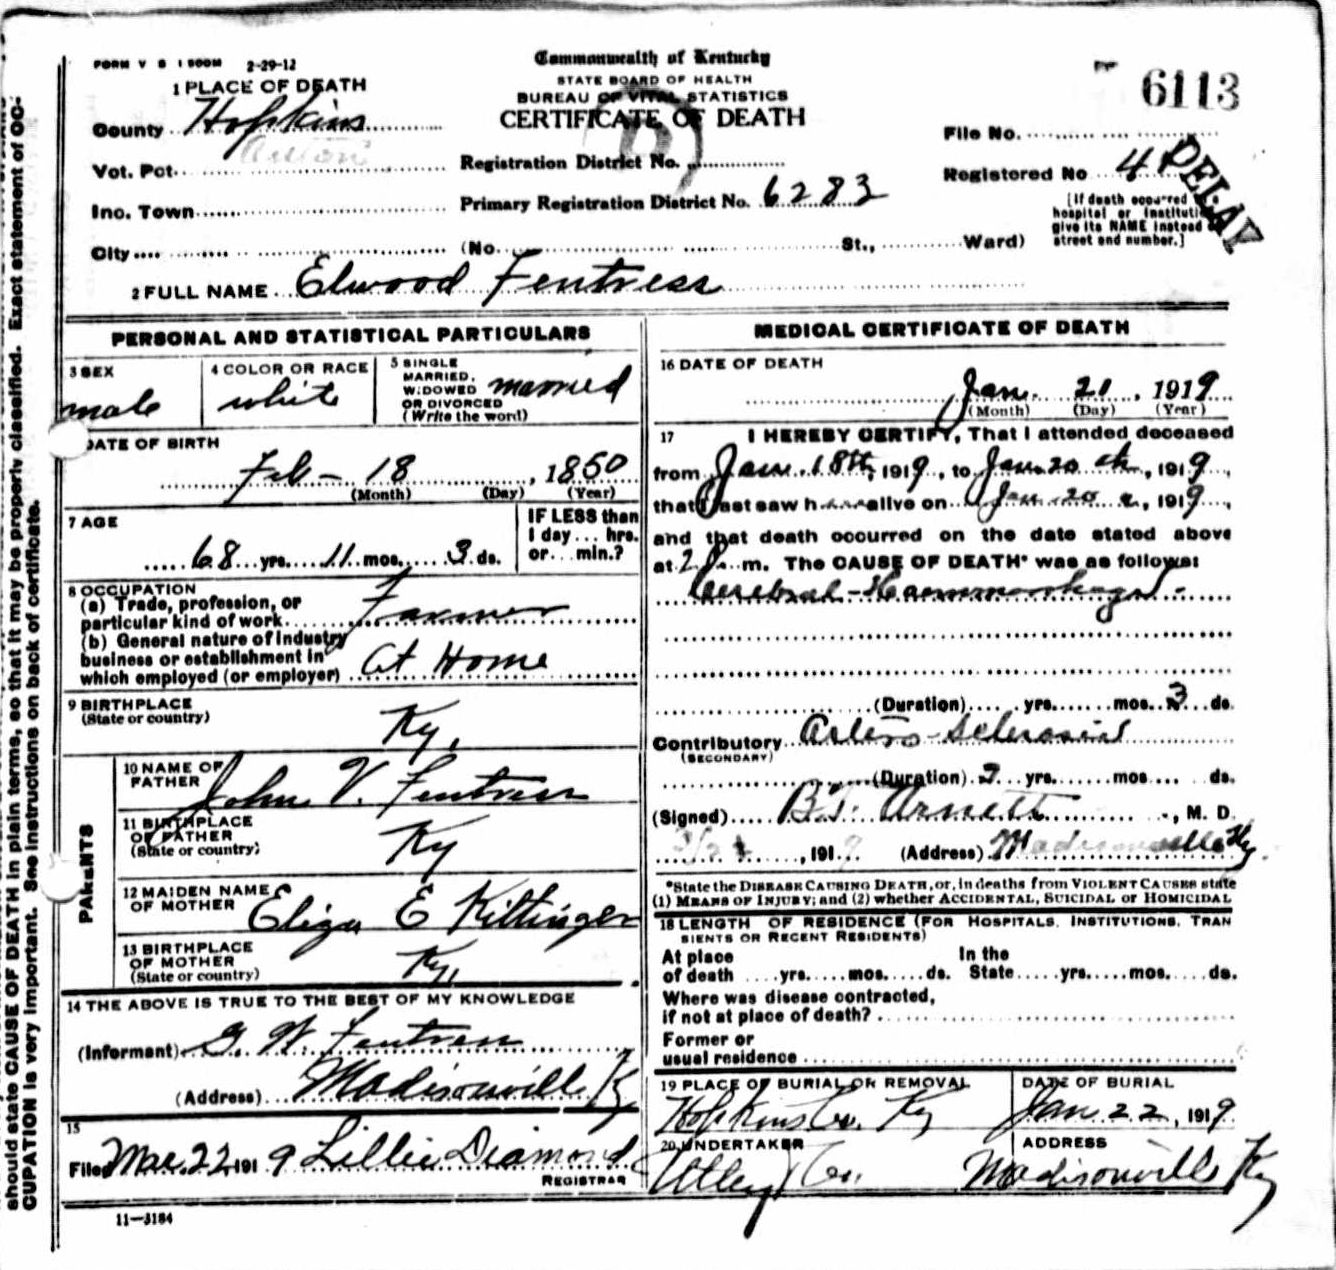 FORM V S 1 500M 2-29-12
Commonwealth of Kentucky
STATE BOARD OF HEALTH
BUREAU OF VITAL STATISTICS
CERTIFICATE OF DEATH
6113
1 PLACE OF DEATH
County Hopkins
Vot. Pct.
Inc. Town
City
Registration District No.
Primary Registration District No. 6283
(No. St., Ward)
File No.
Registered No
DELAY
[If death occurred
hospital or instituti
give its NAME instead
street and number.]
2 FULL NAME Elwood Fentress
PERSONAL AND STATISTICAL PARTICULARS
3 SEX
male
4 COLOR OR RACE
white
5 SINGLE
MARRIED,
WIDOWED
OR DIVORCED
(Write the word)
married
DATE OF BIRTH
Feb - 18, 1850
(Month) (Day) (Year)
7 AGE
68 yrs. 11 mos. 3 ds.
IF LESS than
1 day... hrs.
or... min.?
8 OCCUPATION
(a) Trade, profession, or
particular kind of work Farmer
(b) General nature of Industry
business or establishment in
which employed (or employer) At Home
9 BIRTHPLACE
(State or country)
Ky.
PARENTS
10 NAME OF
FATHER John V. Fentress
11 BIRTHPLACE
OF FATHER
(State or country)
Ky
12 MAIDEN NAME
OF MOTHER Eliza E Kittinger
13 BIRTHPLACE
OF MOTHER
(State or country)
Ky.
14 THE ABOVE IS TRUE TO THE BEST OF MY KNOWLEDGE
(Informant) G. W. Fentress
(Address) Madisonville Ky
15
Filed Mar. 22, 1919 Lillie Diamond
REGISTRAR
11-3184
MEDICAL CERTIFICATE OF DEATH
16 DATE OF DEATH
Jan. 21, 1919
(Month) (Day) (Year)
17 I HEREBY CERTIFY, That I attended deceased
from Jan. 18th, 1919, to Jan. 20th, 1919,
that I last saw h alive on Jan. 20, 1919,
and that death occurred on the date stated above
at 2 m. The CAUSE OF DEATH* was as follows:
Cerebral-Haemmorhage
(Duration) yrs. mos. 3 ds.
Contributory Artero-Sclerosis
(SECONDARY)
(Duration) yrs. mos. ds.
(Signed) B.T. Arnett, M. D.
, 1919 (Address) Madisonville Ky.
*State the DISEASE CAUSING DEATH, or, in deaths from VIOLENT CAUSES state
(1) MEANS OF INJURY; and (2) whether ACCIDENTAL, SUICIDAL or HOMICIDAL
18 LENGTH OF RESIDENCE (FOR HOSPITALS, INSTITUTIONS, TRAN
SIENTS OR RECENT RESIDENTS)
At place In the
of death yrs. mos. ds. State yrs. mos. ds.
Where was disease contracted,
if not at place of death?
Former or
usual residence
19 PLACE OF BURIAL OR REMOVAL
Hopkins Co. Ky
DATE OF BURIAL
Jan 22, 1919
20 UNDERTAKER
Utley Co.
ADDRESS
Madisonville Ky
should state CAUSE OF DEATH in plain terms, so that it may be properly classified. Exact statement of OC-
CUPATION is very important. See instructions on back of certificate.